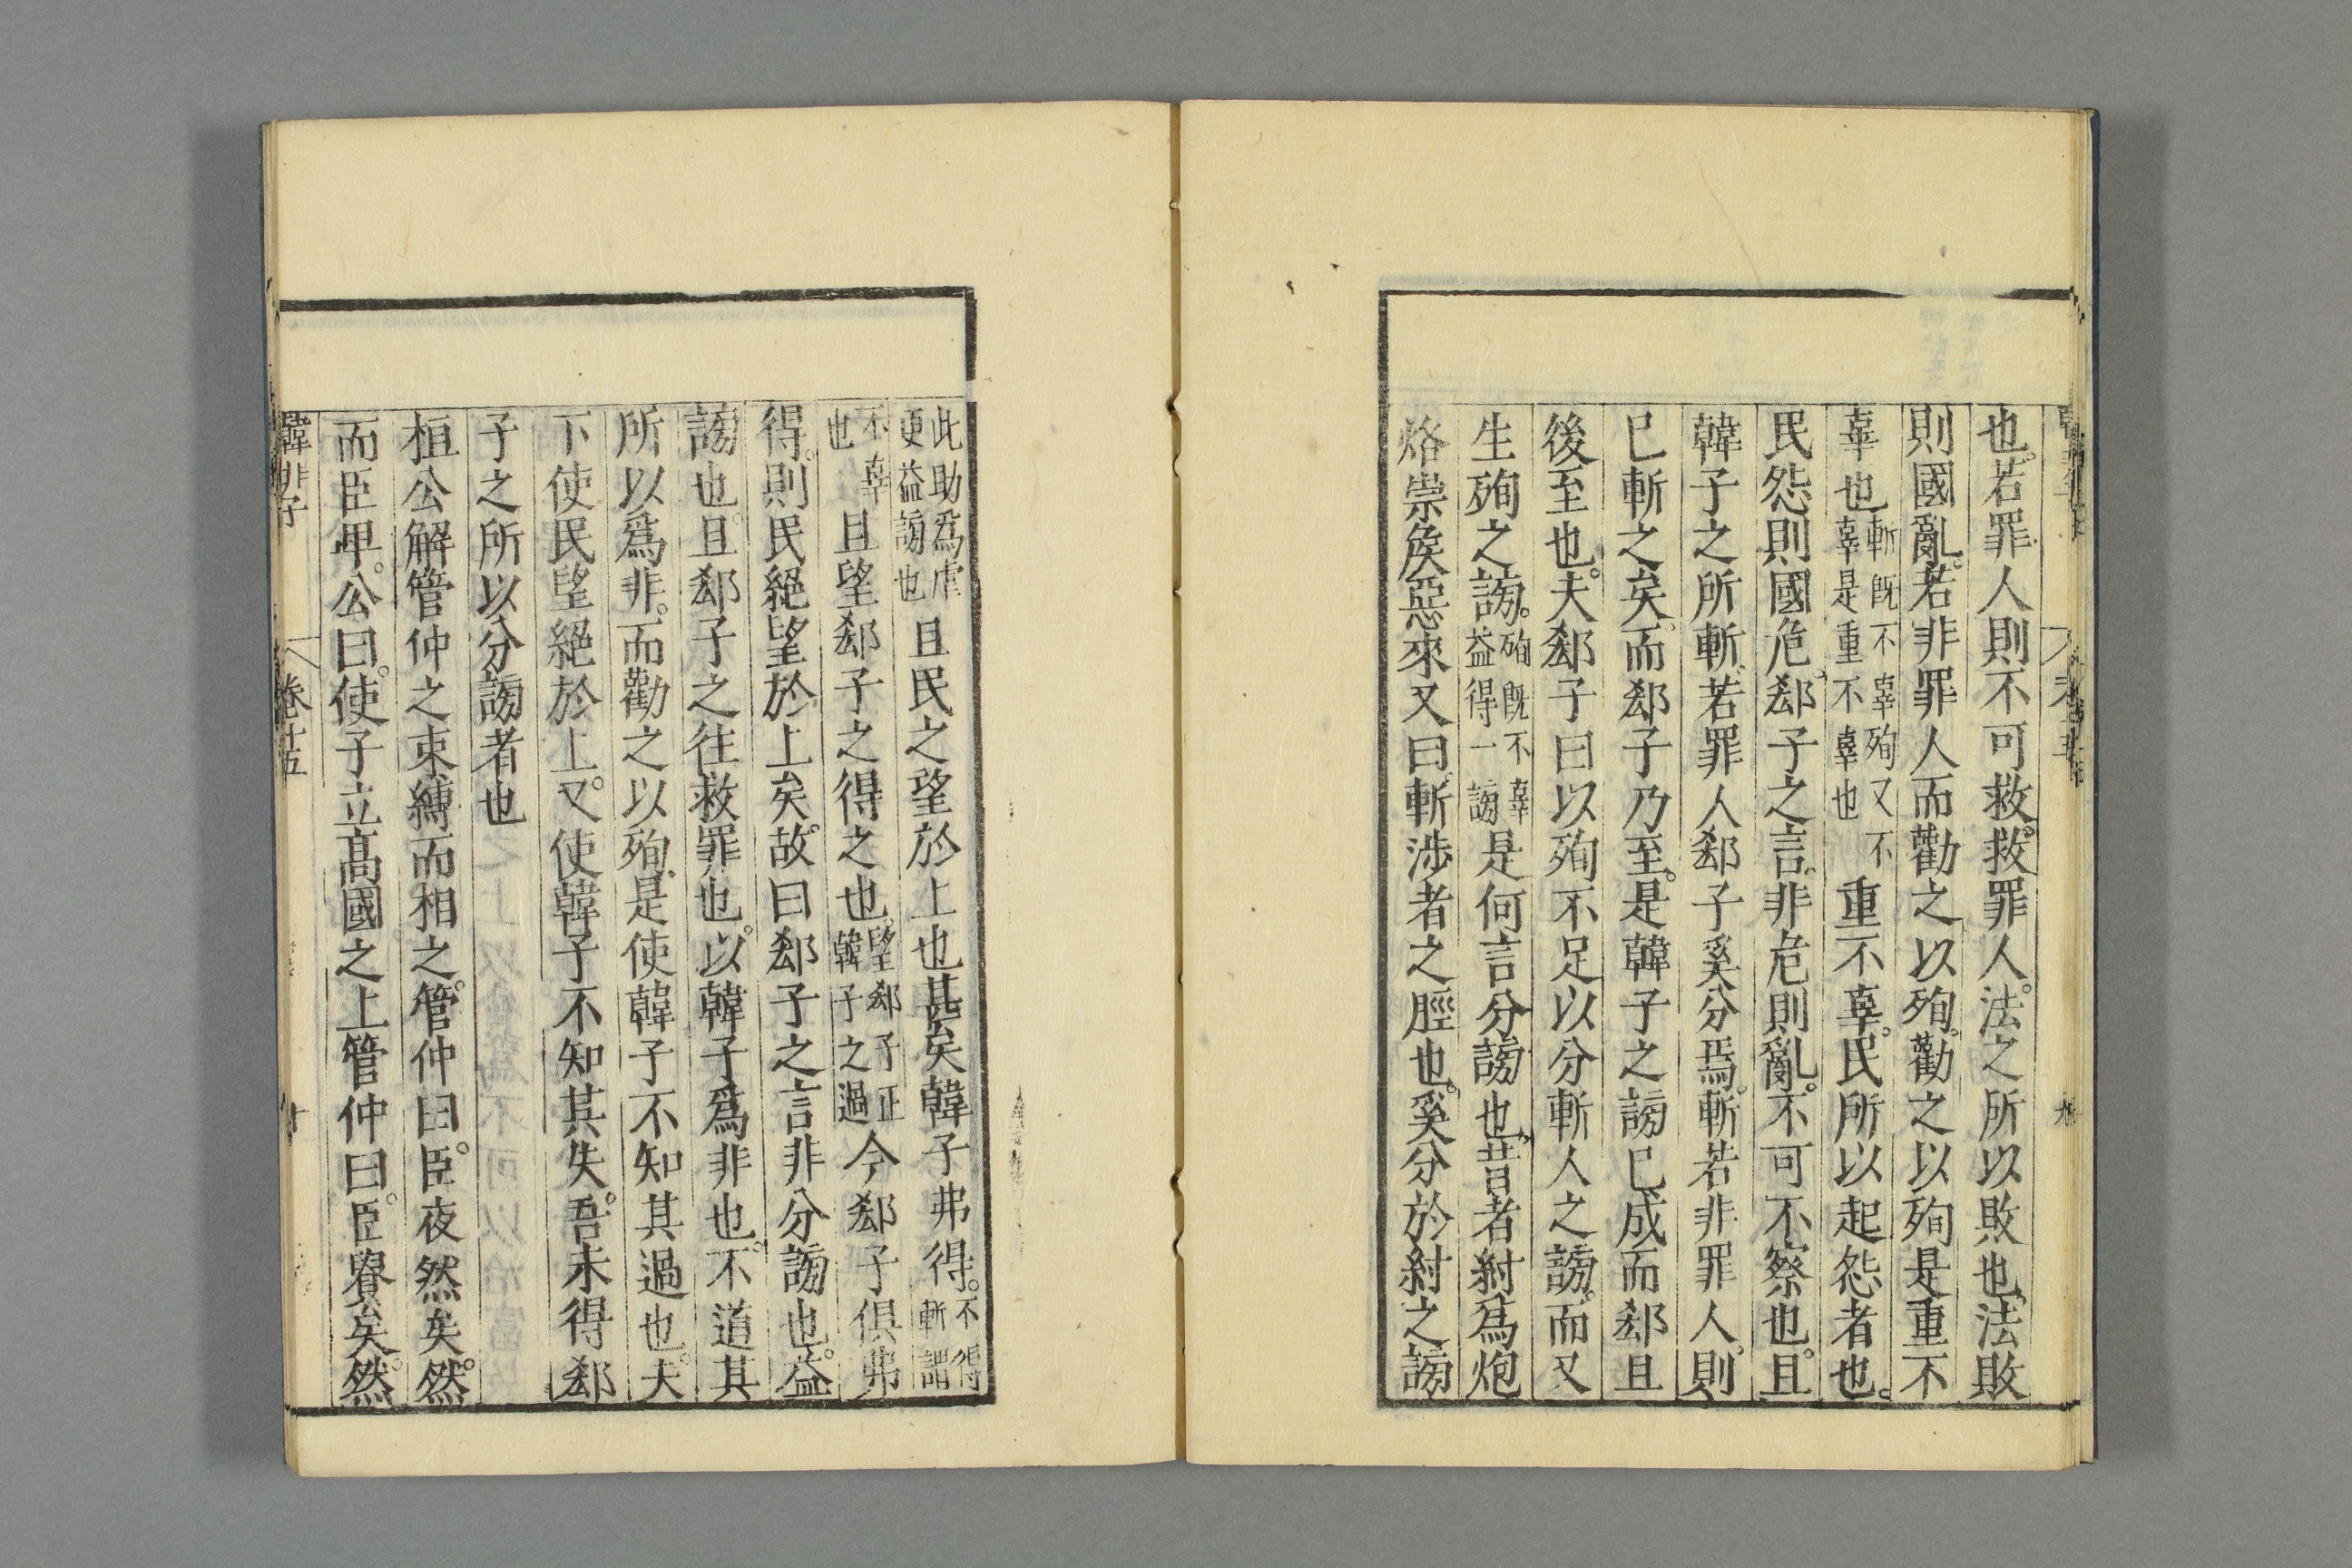 也。若罪人則不可救。救罪人。法之所以敗也、法敗
則國亂。若非罪人而勸之以殉。勸之以殉是重不
辜也斬既不辜殉又不辜是重不辜也重不辜。民所以起怨者也。
民怨則國危。郄子之言。非危則亂。不可不察也。且
韓子之所斬。若罪人郄子奚分焉。斬若非罪人。則
已斬之矣。而郄子乃至。是韓子之謗已成而郄且
後至也。夫郄子曰以殉不足以分斬人之謗。而又
生殉之謗。殉既不辜益得一謗是何言分謗也。昔者紂爲炮
烙崇矦惡來又曰斬涉者之脛也。奚分於紂之謗
韓非子 卷十五 九
此助爲虐更益謗也且民之望於上也甚矣韓子弗得。不得謂斬
不辜也且望郄子之得之也。望郄子正韓子之過今郄子俱弗
得。則民絕望於上矣。故曰郄子之言非分謗也。益
謗也。且郄子之往救罪也。以韓子爲非也。不道其
所以爲非。而勸之以殉。是使韓子不知其過也。夫
下使民望絕於上。又使韓子不知其失。吾未得郄
子之所以分謗者也
桓公解管仲之束縛而相之。管仲曰。臣夜然矣。然
而臣卑。公曰。使子立高國之上管仲曰。臣貴矣。然
韓非子 卷十五 十